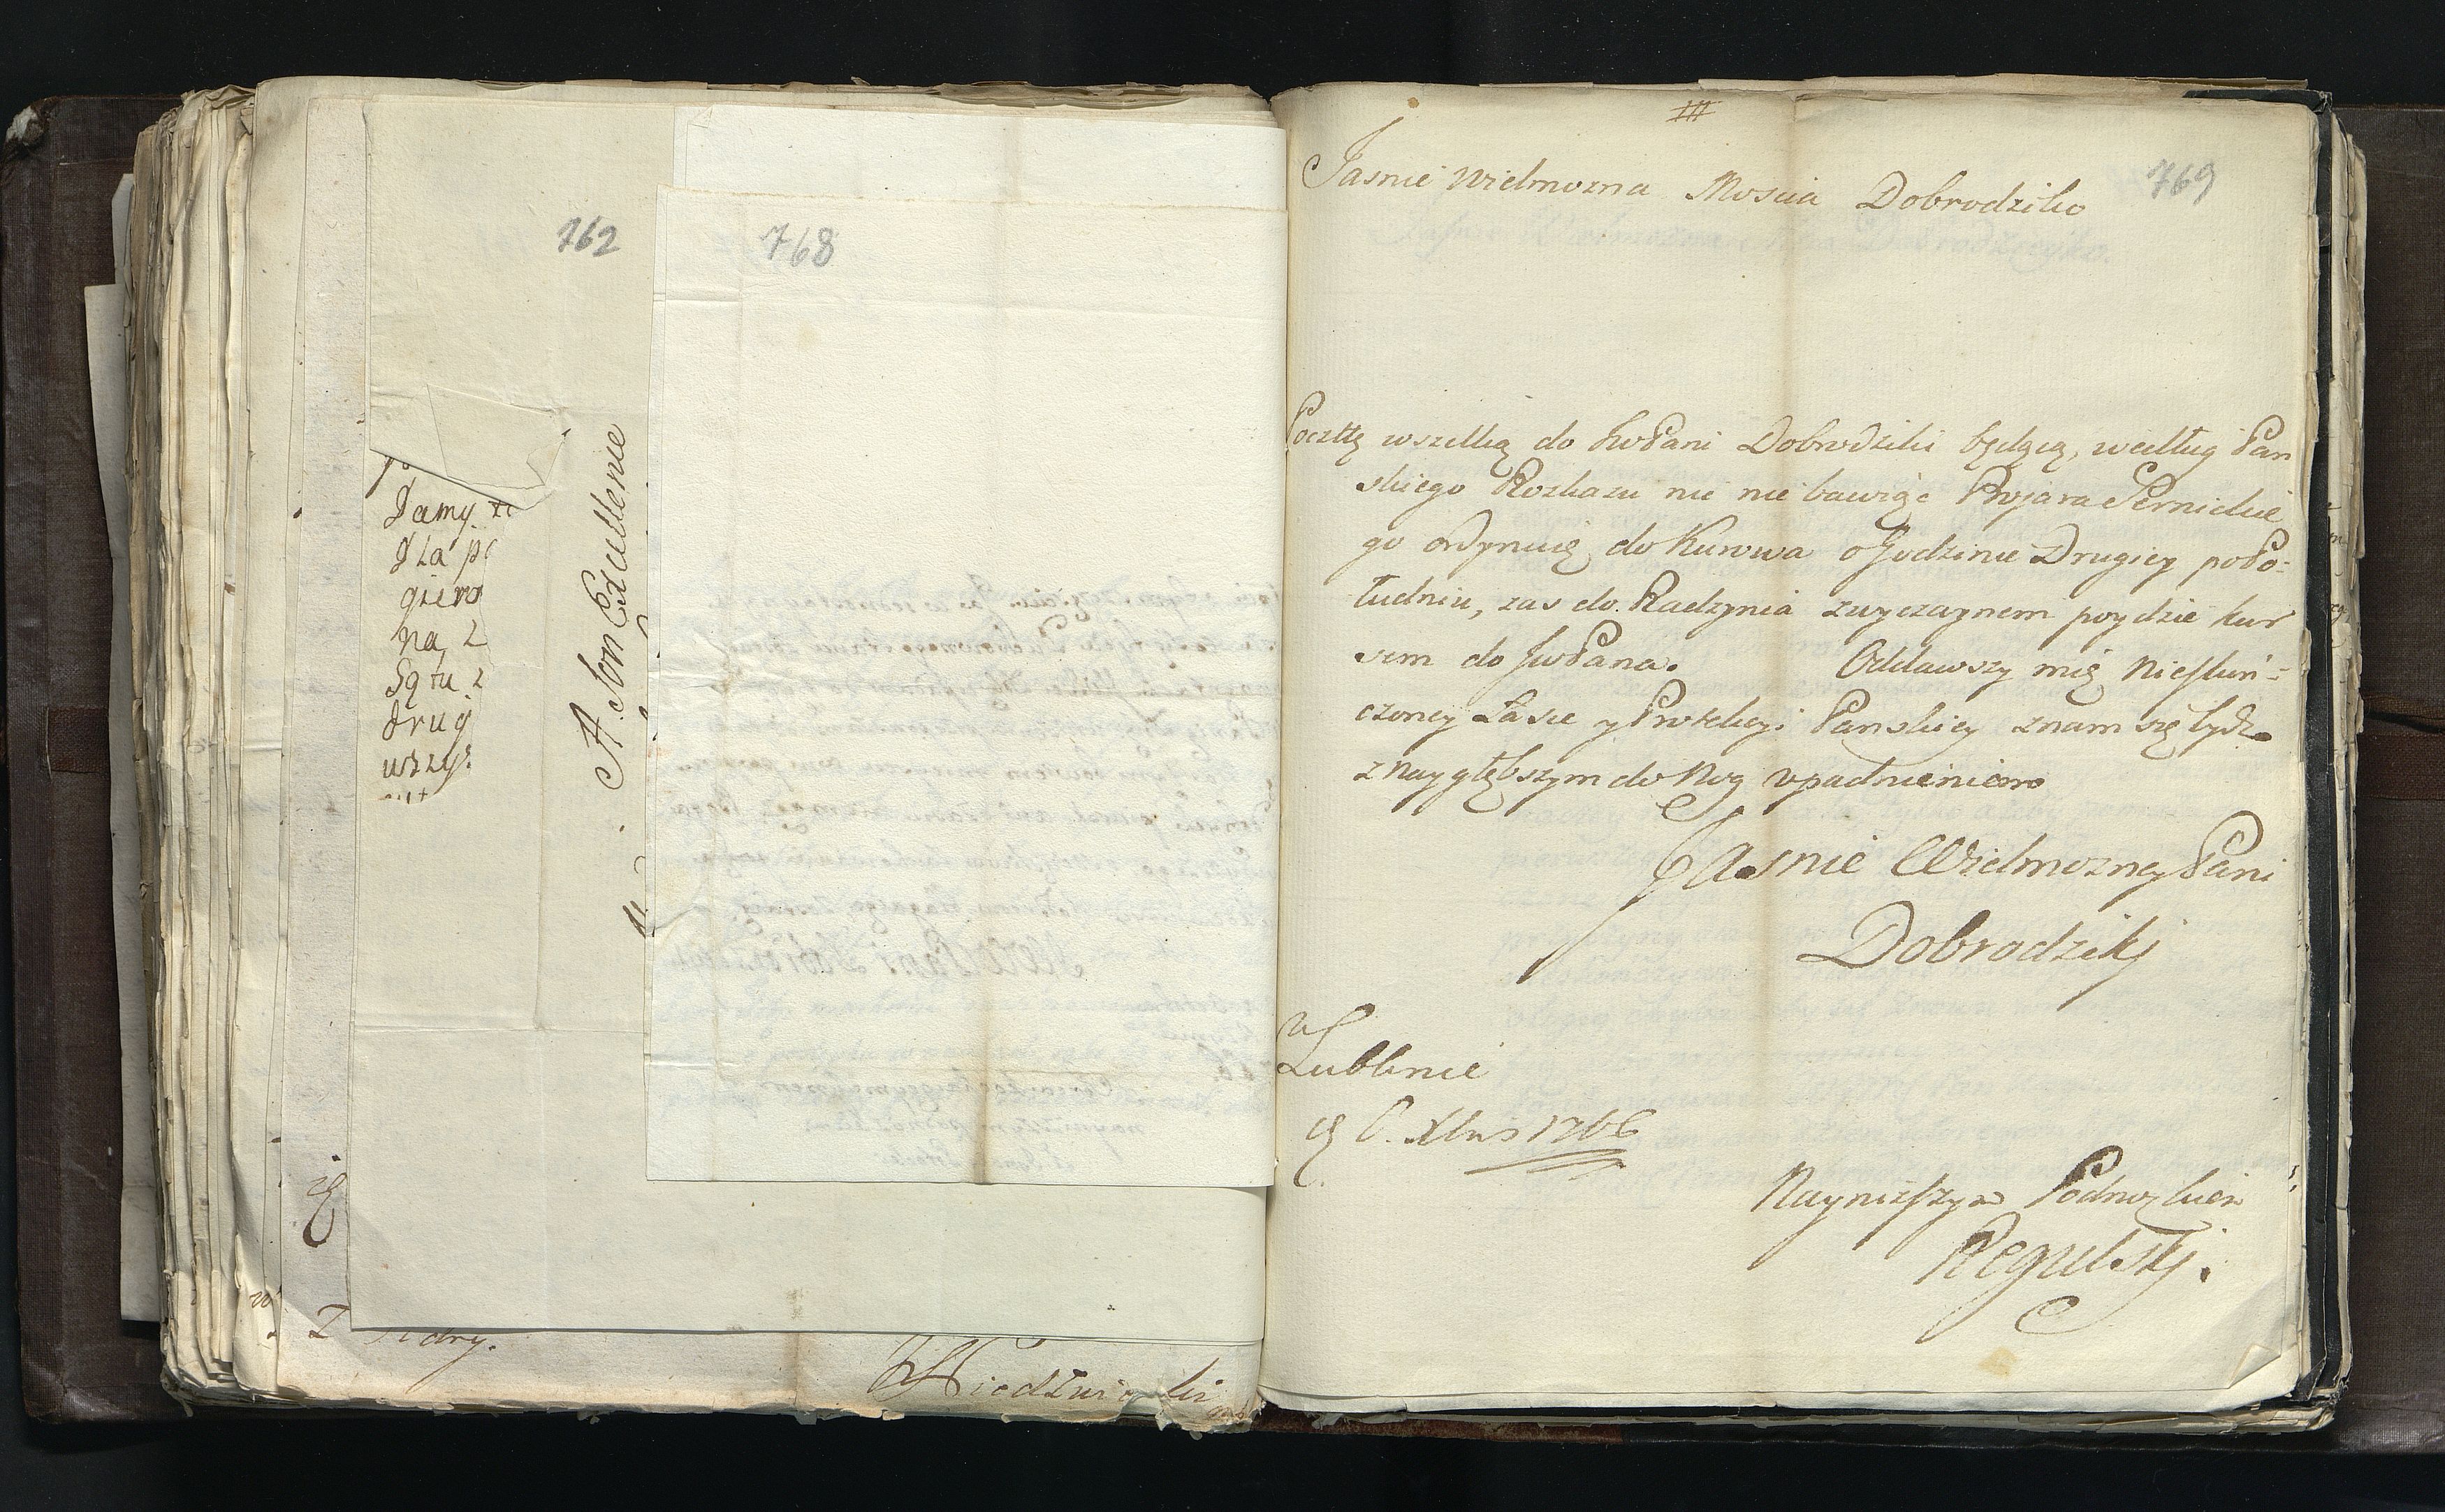 762
768
Damy
dla
giero
na
Są tu
drug
wszys
A Son Excellenc
Niedźwie
III
769
Jasnie Wielmozna Mościa Dobrodziko
Pocztę wszelką do JwPani Dobrodziki będącą, według Pan
skiego Rozkazu nie nie bawiąc Bojara Sernickie
go ordynuię do Kurowa o Godzinie Drugiey poPo=
łudniu, zas do Radzynia zwyczaynem poydzie kur
sem do JwPana. Oddawszy mię Nieskuń=
czoney Łasce y Protekcyi Panskiey znam się bydz
z Naygłębszym do Nog upadnieniem
JAsnie Wielmozney Pani
Dobrodziki
w
Lublinie
1766
Naynizszym Podnozkiem
Regulski.